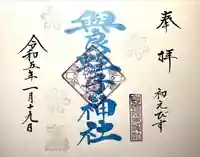 奉拝
初えびす
蛭子神社
令和五年一月十九日